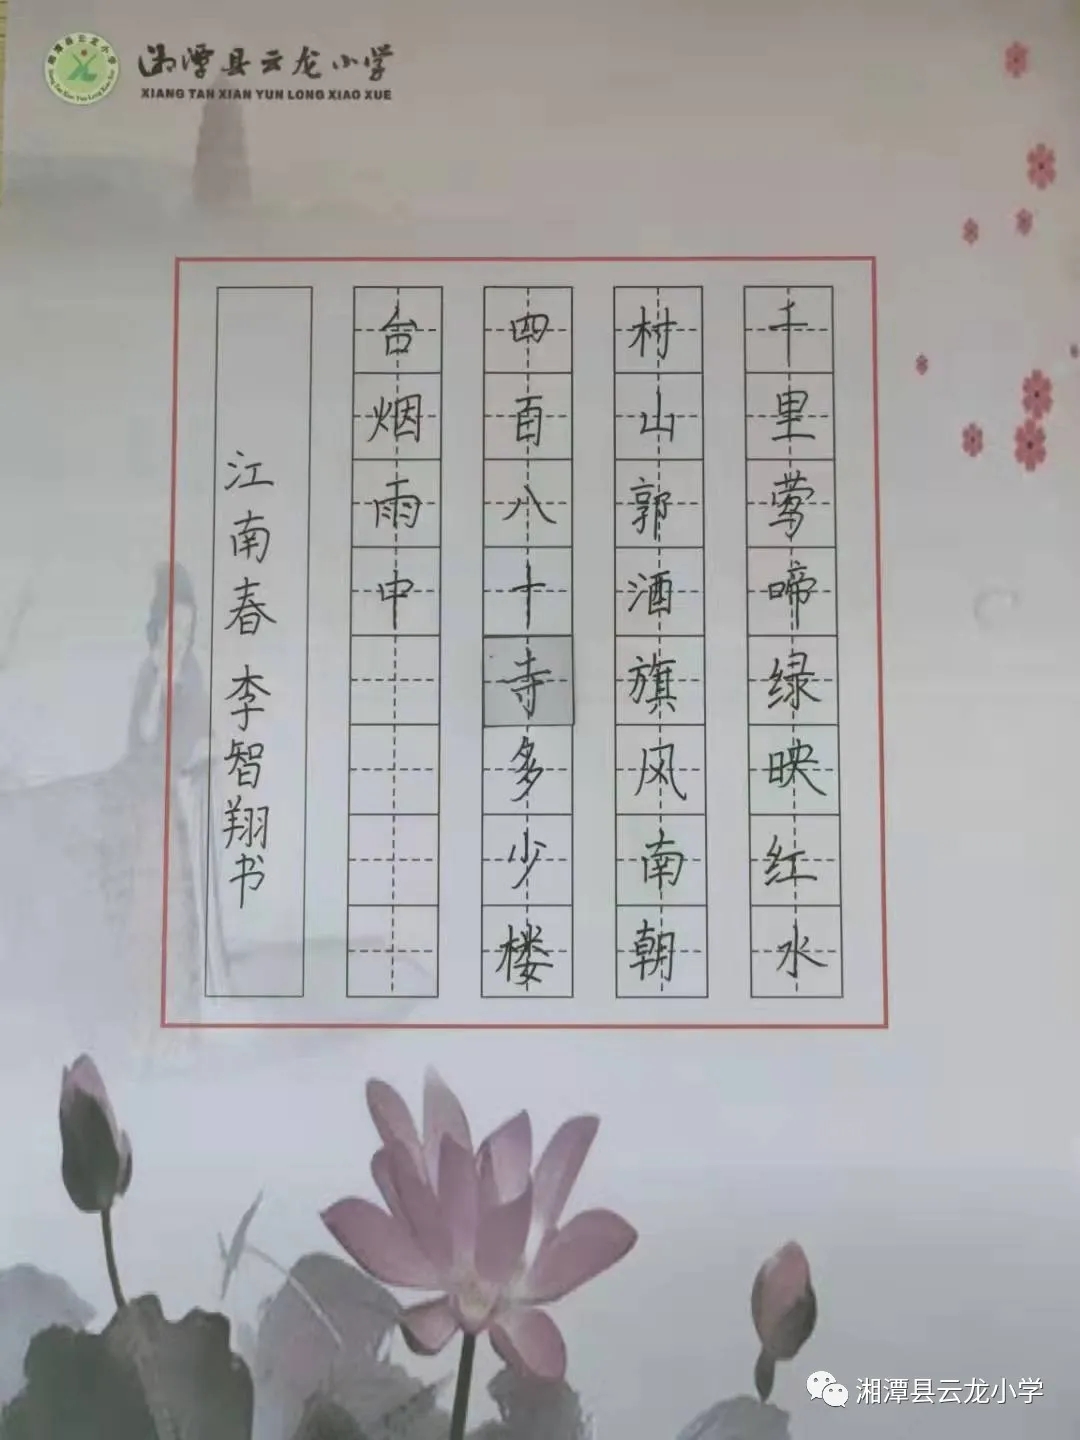 湘潭县云龙小学
XIANG TAN XIAN YUN LONG XIAO XUE
千里莺啼绿映红水
村山郭酒旗风南朝
四百八十寺多少楼
台烟雨中
江南春 李智翔书
湘潭县云龙小学